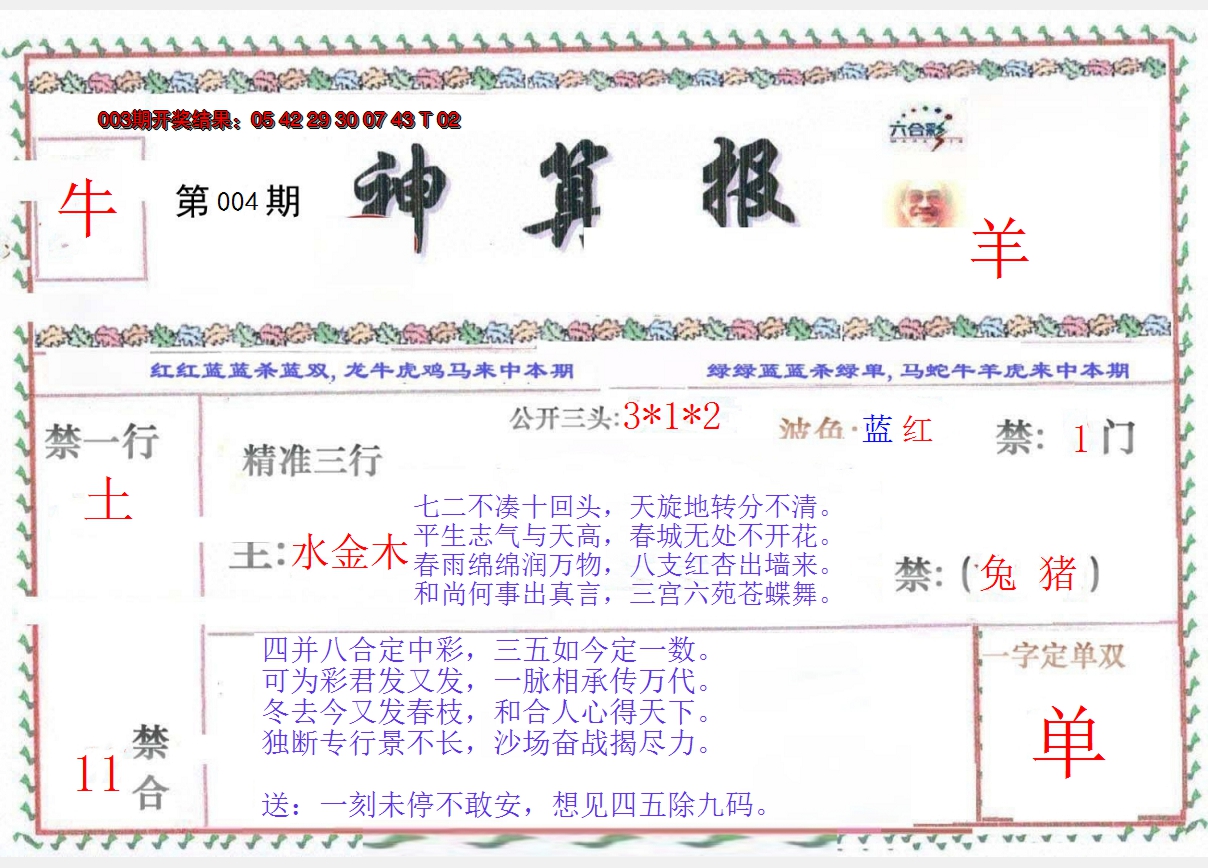 003期开奖结果：05 42 29 30 07 43 T 02
六合彩
牛
第 004 期
神算报
羊
红红蓝蓝杀蓝双, 龙牛虎鸡马来中本期
绿绿蓝蓝杀绿单, 马蛇牛羊虎来中本期
公开三头:3*1*2
波色:蓝 红
禁: 1 门
禁一行
土
精准三行
主:水金木
七二不凑十回头，天旋地转分不清。
平生志气与天高，春城无处不开花。
春雨绵绵润万物，八支红杏出墙来。
和尚何事出真言，三宫六苑苍蝶舞。
禁:(兔 猪)
四并八合定中彩，三五如今定一数。
可为彩君发又发，一脉相承传万代。
冬去今又发春枝，和合人心得天下。
独断专行景不长，沙场奋战揭尽力。
送：一刻未停不敢安，想见四五除九码。
11
禁合
一字定单双
单